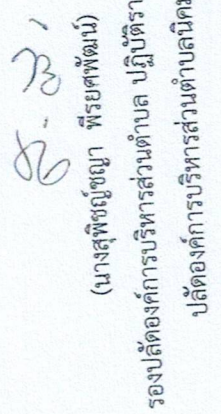 (นางสุพิชญ์ชญา พีรยศพัฒน์)
รองปลัดองค์การบริหารส่วนตำบล ปฏิบัติรา
ปลัดองค์การบริหารส่วนตำบลนิคม